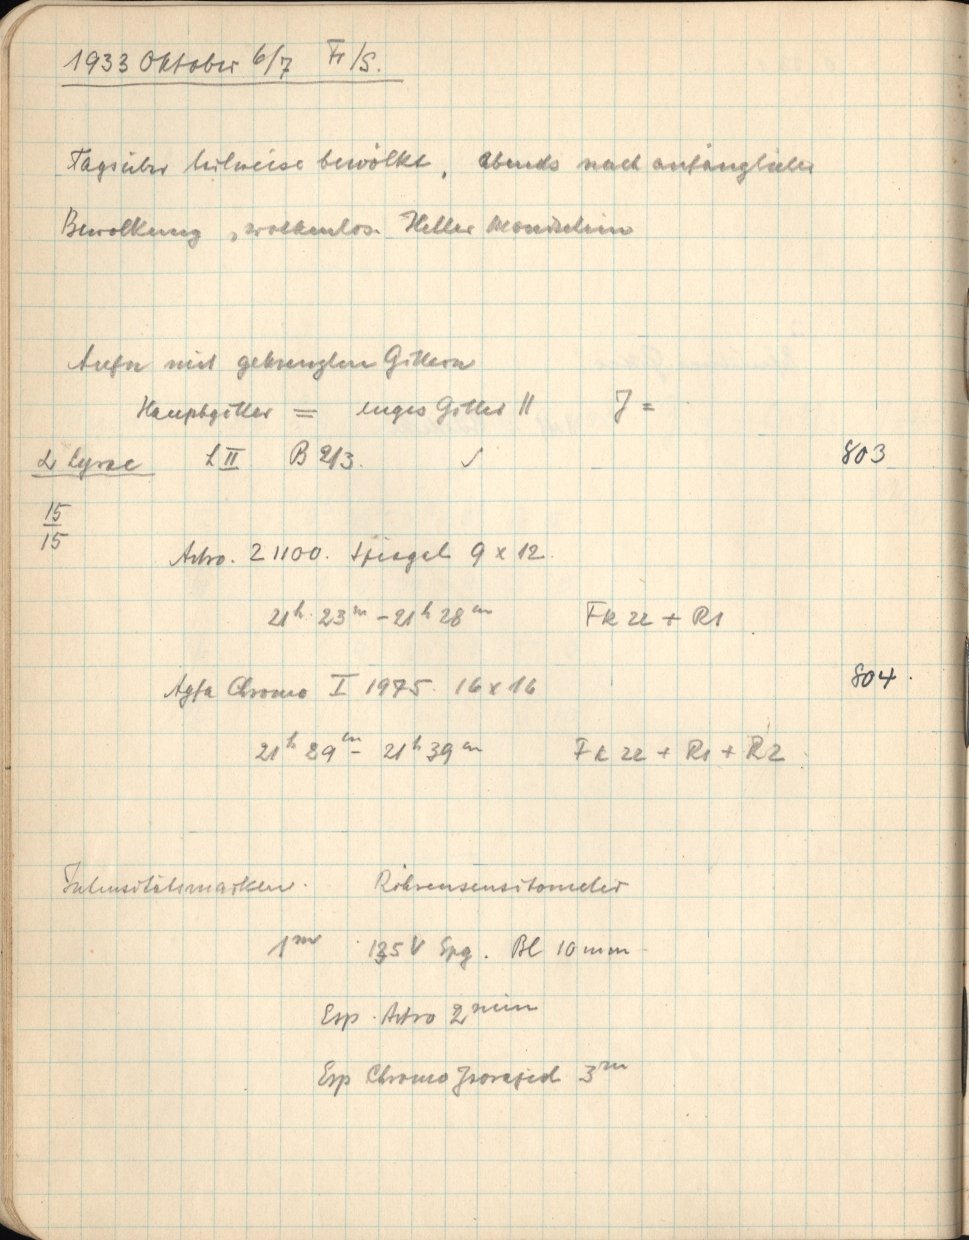 1933 Oktober 6/7 Fr/S.
Tagsüber teilweise bewölkt, abends nach anfänglicher
Bewölkung, wolkenlos. Heller Mondschein
Aufn mit gekreuzten Gittern
Hauptgitter = enges Gitter II J =
α Lyrae L II B 2/3. ✓ 803
15
15
Astro. 21100. Spiegel 9 x 12.
21h 23m - 21h 28m Fk 22 + R1
Agfa Chromo I 1975. 16 x 16 804.
21h 29m - 21h 39m Fk 22 + R1 + R2
Intensitätsmarken. Röhrensensitometer
1m 135 V Spg. Bl 10 mm
Exp. Astro 2 min
Exp Chromo Isorapid 3m